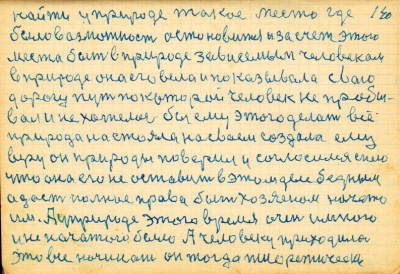 найти у природе такое место где 140
было возможност остоновится и за счет этого
места быт в природе зависемым человекам
в природе она его вела и показывала сваю
дорогу пут по каторой человек не пробы-
вал и не хотелос бы ему этого делат всё
природа настояла на своем создала ему
веру он природы поверил и согласился с нею
что она его не оставит в этом деле бедным
а даст полное права быт хозяеном начато
им. А у природе этого время очен много
и не начатого было А человеку приходилос
это все начинат он тогда теоретическ